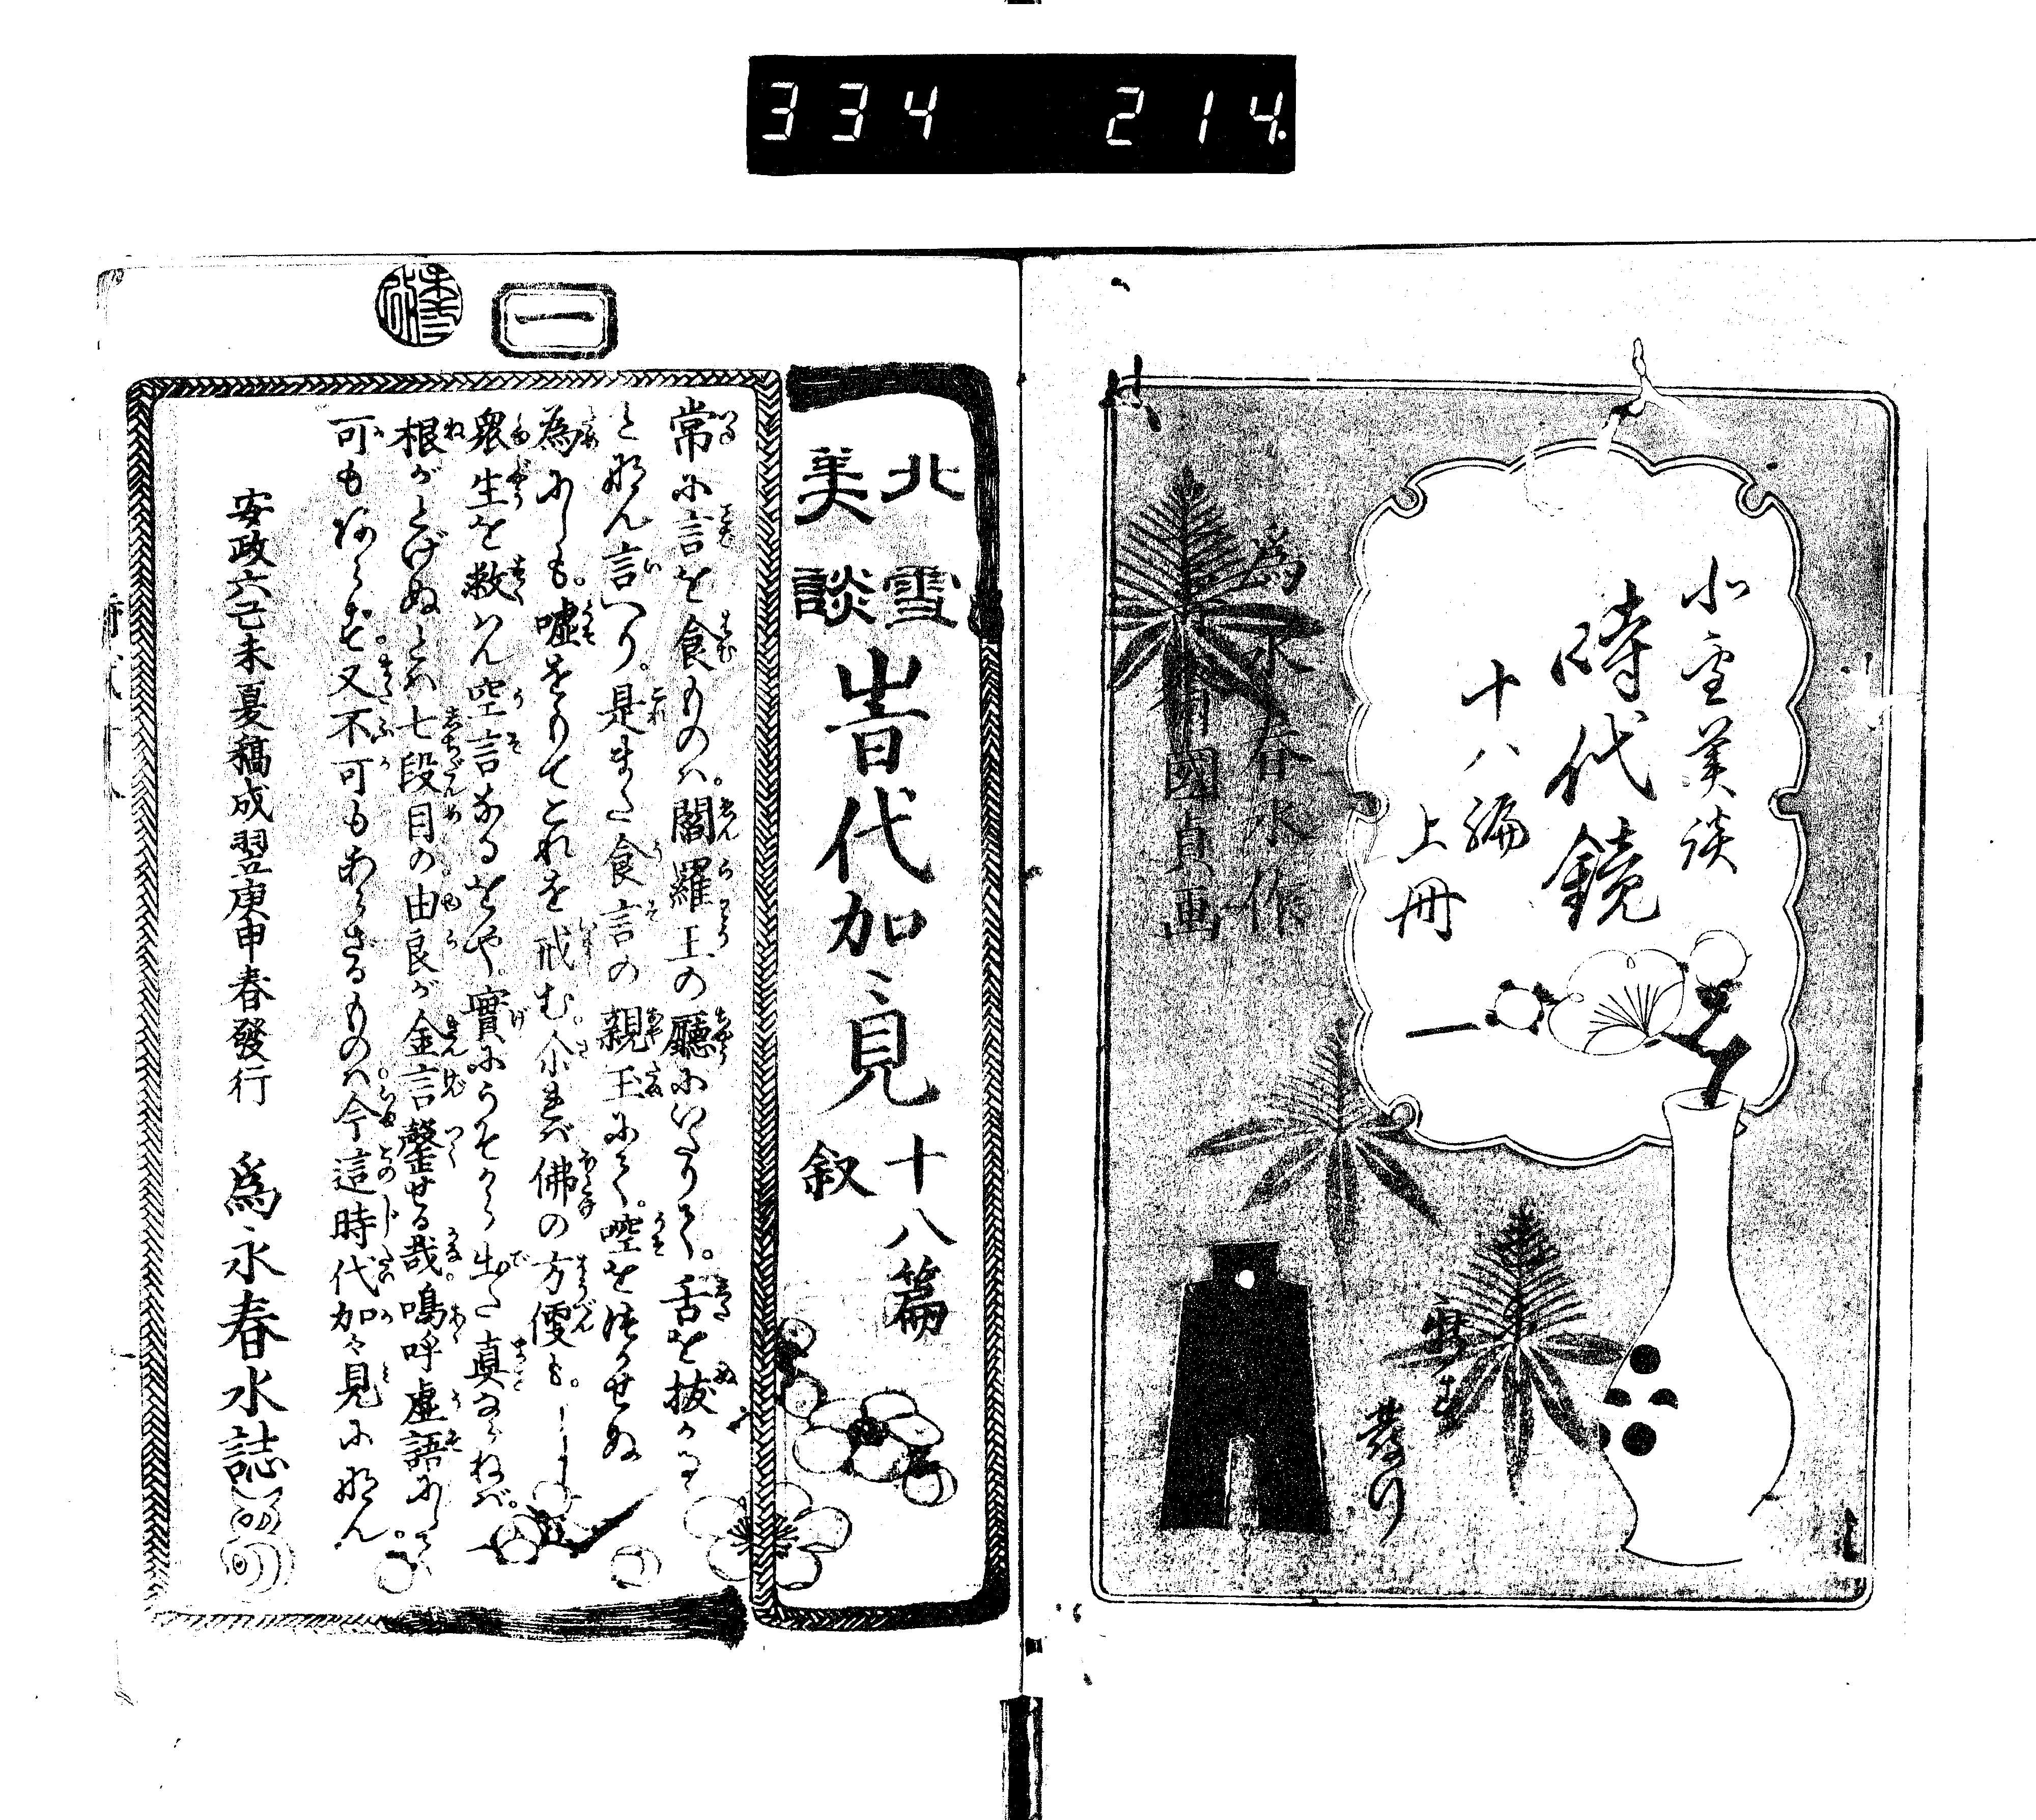 334 214.
北雪美談
時代鏡
十八編
上冊
為永春水作
國貞画
發行
一
北雪
美談
峕代加ゞ見
十八篇
叙
常に言を食ものハ。閻羅王の廳にいたりて。舌を抜かる
と那ん言つり。是また食言の親玉にて。噇を
為にしも。嘘をもてこれを戒む。尒れバ佛の方便も。
衆生を救ハん空言なるをや。實にうそから出た真ならねバ。
根がとげぬとハ七段目の由良が金言鑿せる哉。嗚呼虚語にして
可もあらず。又不可もあらざるものハ今這時代加ゞ見に那ん。
安政六己未夏稿成翌庚申春發行
為永春水誌